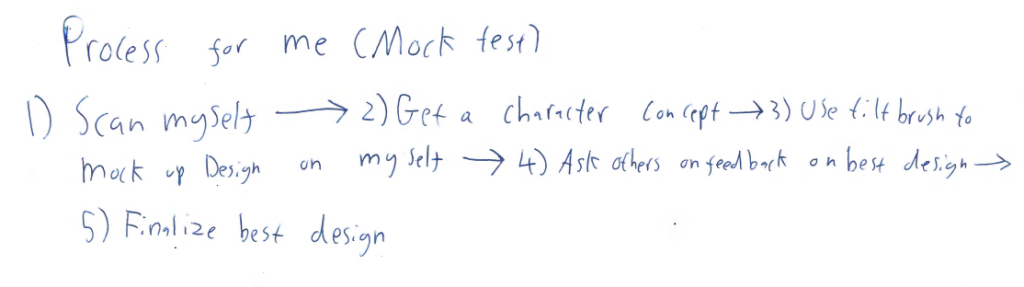 Process for me (Mock test)
1) Scan myself → 2) Get a character concept → 3) Use tiltbrush to
mock up Design on my self → 4) Ask others on feedback on best design →
5) Finalize best design